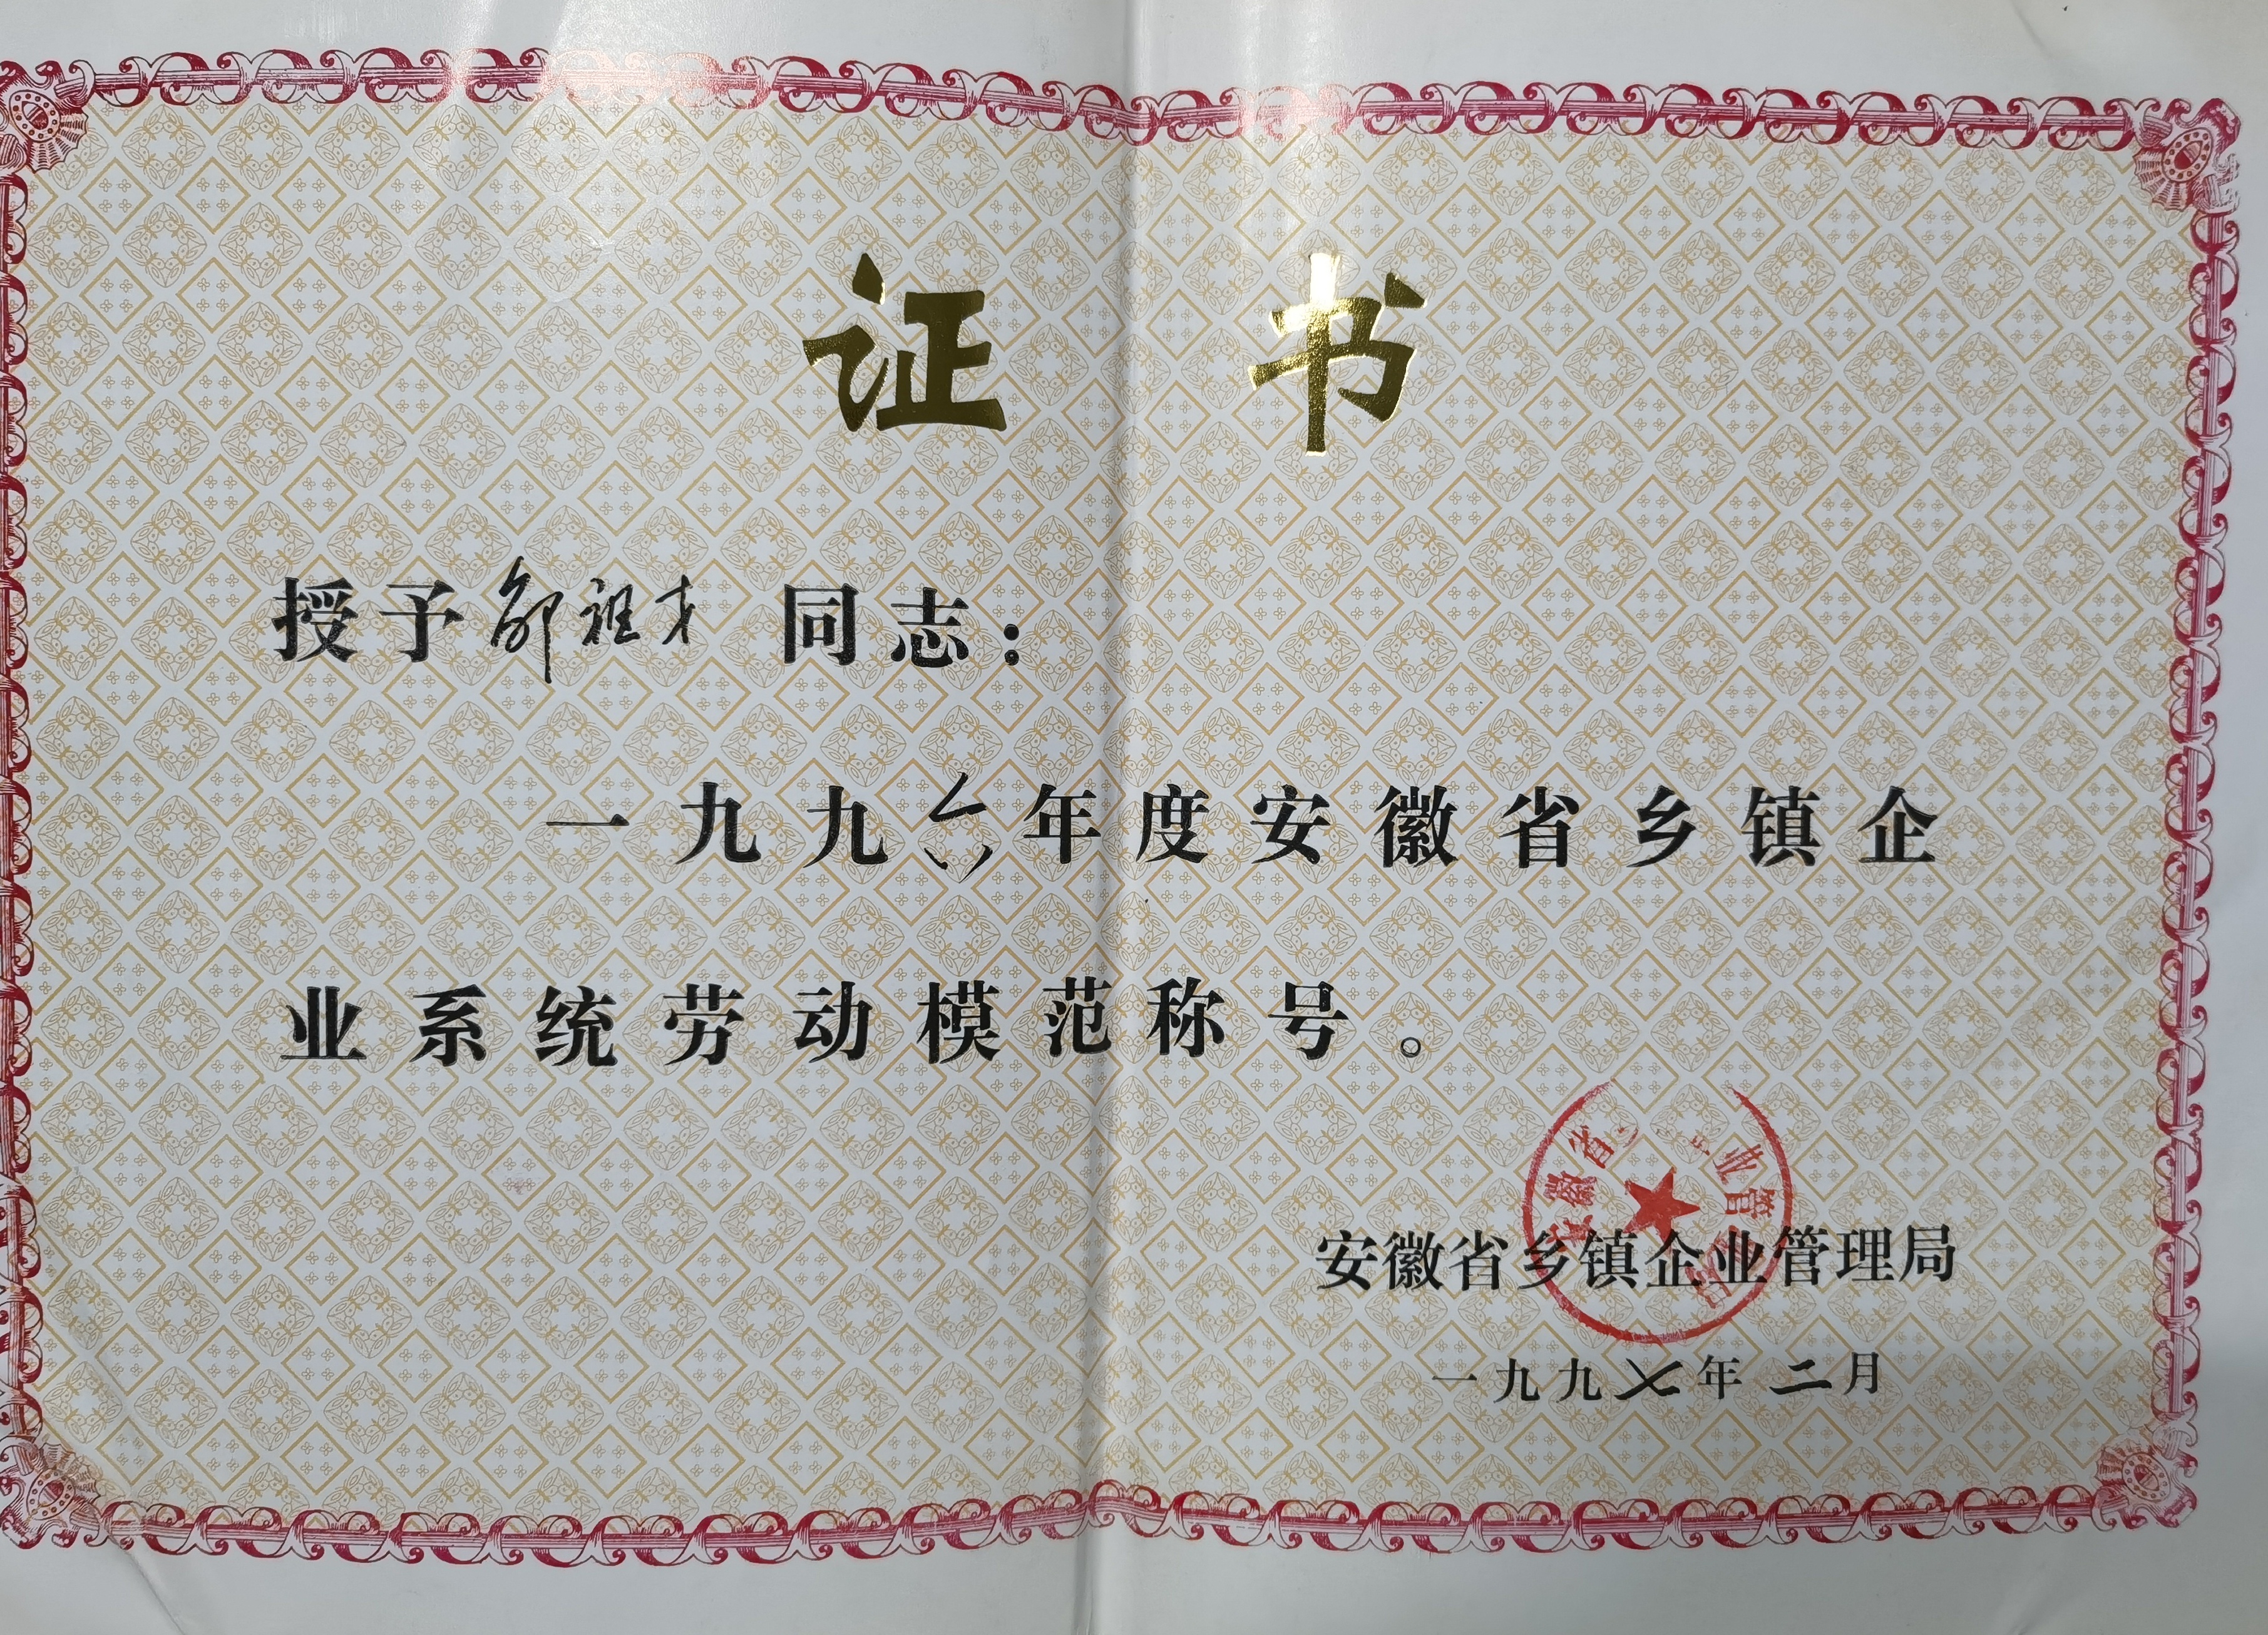 证 书
授予郇祖才 同志：
一九九六年度安徽省乡镇企
业系统劳动模范称号。
安徽省 业管
安徽省乡镇企业管理局
一九九七年二月